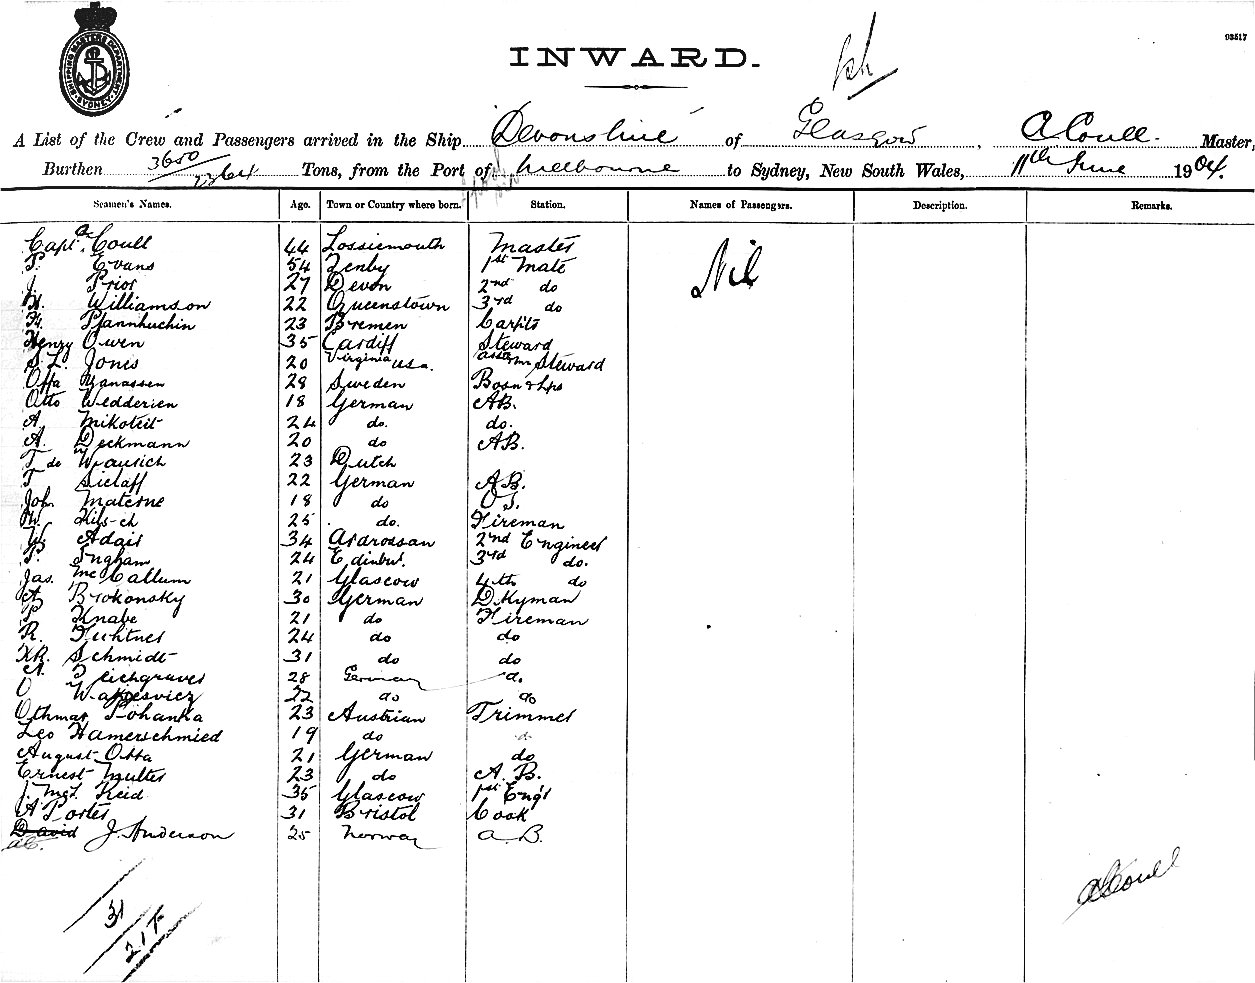 SHIPPING MASTERS DEPARTMENT SYDNEY
03517
INWARD.
A List of the Crew and Passengers arrived in the Ship Devonshire of Glasgow, A Coull. Master,
Burthen 3650/2364 Tons, from the Port of Melbourne to Sydney, New South Wales, 11th June 1904.
Seamen's Names. Age. Town or Country where born. Station. Names of Passengers. Description. Remarks.
Capt A. Coull 44 Lossiemouth Master Nil
Evans 54 Tenby 1st Mate
J. Prior 27 Devon 2nd do
Williamson 22 Queenstown 3rd do
23 Bremen
Henry Owen 35 Cardiff Steward
S. L. Jones 20 Virginia USA. Steward
28 Sweden
Otto 18 German AB.
A. Mikoteit 24 do. do.
A. Deckmann 20 do AB.
T de 23 Dutch
T Sielaff 22 German A.B.
Joh. Materne 18 do O S.
25 do. Fireman
W. Adair 34 Ardrossan 2nd Engineer
Ingham 24 Edinbur. 3rd do.
Jas. McCallum 21 Glascow 4th do
A Brokonsky 30 German Dkyman
P Knabe 21 do Fireman
R. 24 do do
Schmidt 31 do do
A. 28 German do
22 do do
Othmar Pohanka 23 Austrian Trimmer
Leo Hamerschmied 19 do do
August Otta 21 German do
Ernest Multer 23 do A. B.
Reid 35 Glascow 1st Engr
A Porter 31 Bristol Cook
David J. Anderson 25 Norway A. B.
A.C.
A Coull
31
217